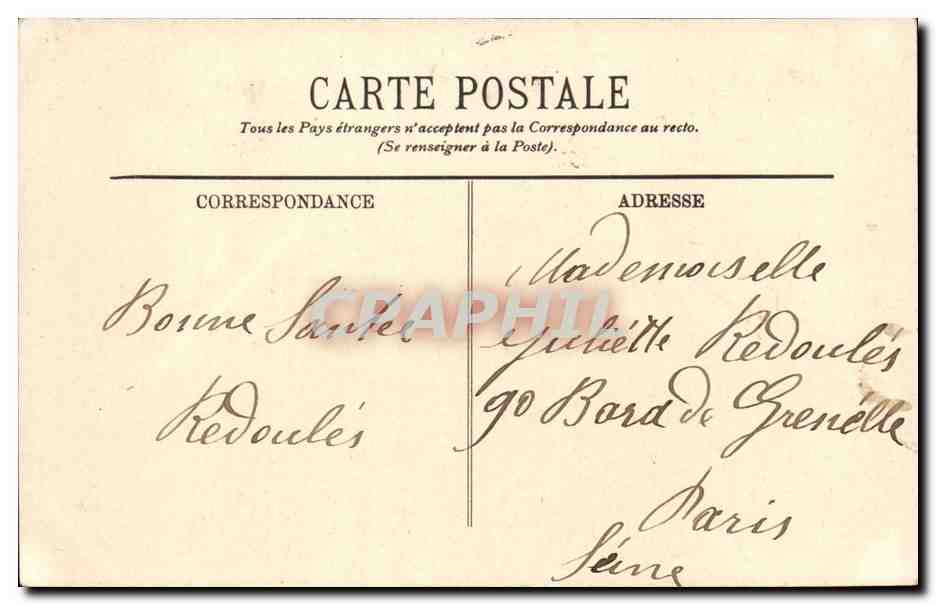 CARTE POSTALE
Tous les Pays étrangers n'acceptent pas la Correspondance au recto.
(Se renseigner à la Poste).
CORRESPONDANCE
Bonne Santée
Redoulés
ADRESSE
Mademoiselle
Juliétte Redoulés
90 Bord de Grenélle
Paris
Séine
CPAPHIL